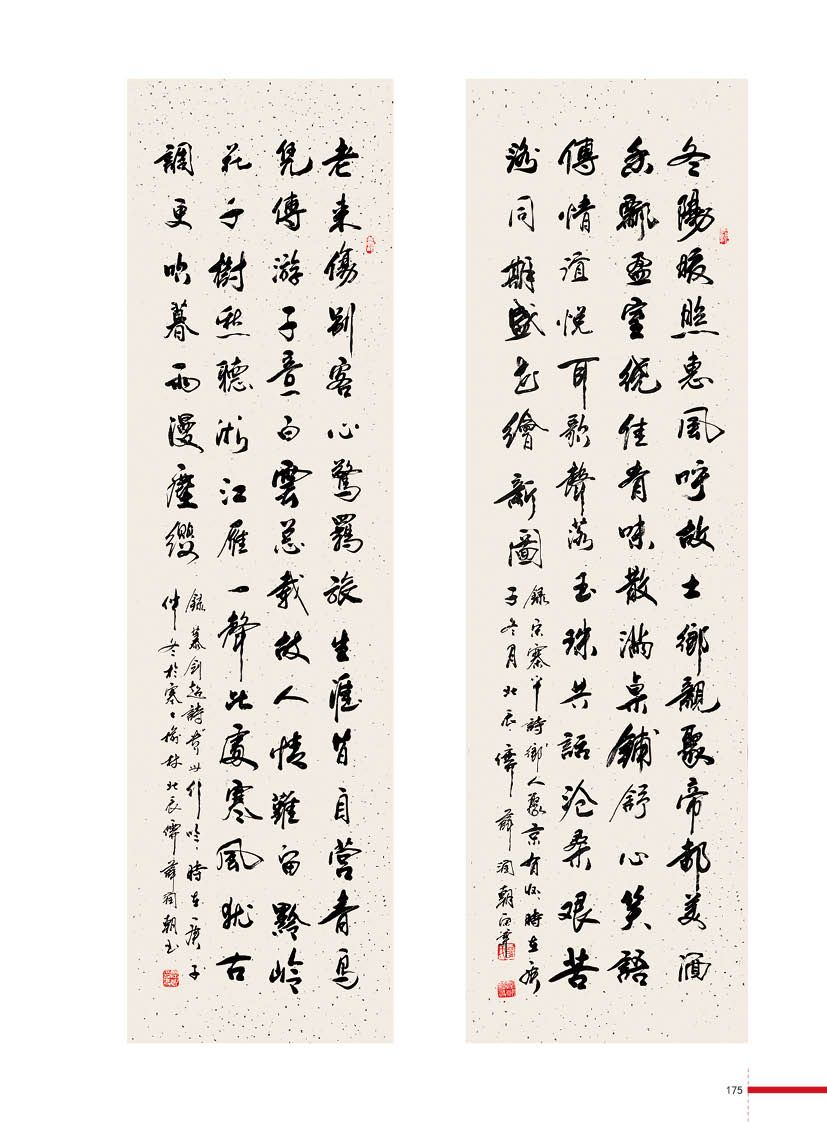 冬陽暖照惠風呼故土鄉親聚帝都美酒
香飄盈室繞佳肴味散滿桌鋪舒心笑語
傳情誼悅耳歌聲落玉珠共話滄桑艱苦
路同期盛世繪新圖
詩鄉人聚京有懷時在庚
子冬月北辰儒薛潤朝
老來傷別客心驚羈旅生涯皆自營青鳥
凭傳游子意白雲總載故人情難留黟嶺
花千樹愁聽浙江雁一聲此處寒風古
調更吹暮雨漫塵纓
錄慕劍超詩黃山行吟時在庚子
仲冬於榆林北辰儒薛潤朝書
175